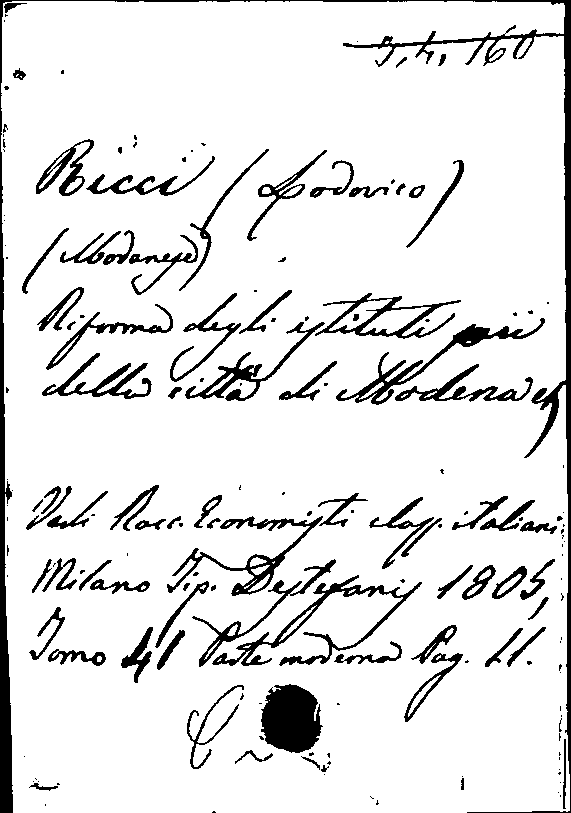 J, 4, 160
Ricci (Lodovico)
(Modanese)
Riforma degli istituti pii
della città di Modena
Vedi Racc. Economisti class. italiani
Milano Tip. Destefanis 1805,
Tomo 41 Parte moderna Pag. 11.